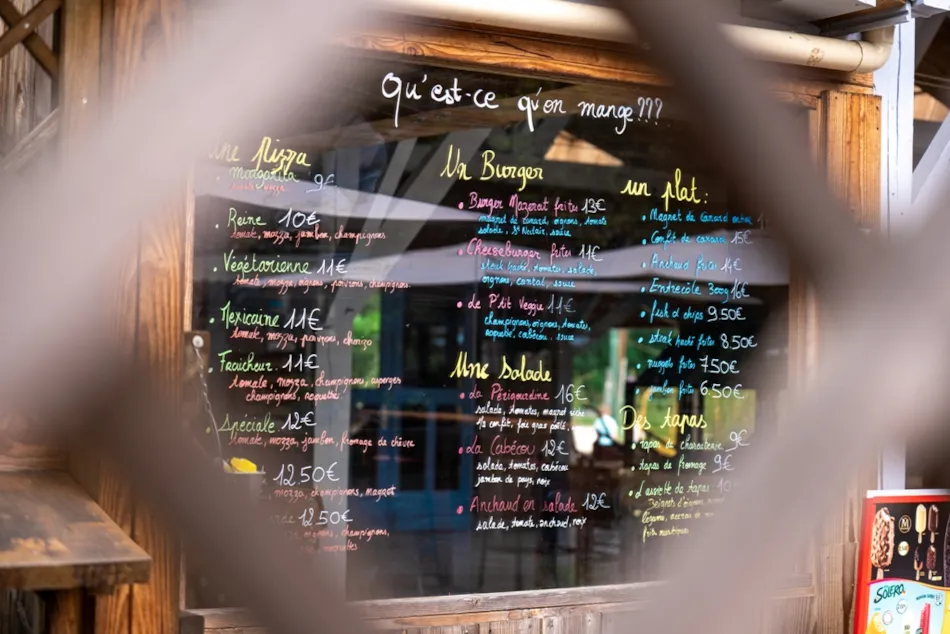 Qu'est-ce qu'on mange???
une Pizza
margarita 9€
Reine 10€
tomate, mozza, jambon, champignons
Végétarienne 11€
tomate, mozza, oignons, poivrons, champignons.
Mexicaine 11€
tomate, mozza, poivrons, chorizo
Fraicheur 11€
tomate, mozza, champignons, asperges
champignons, roquette.
Spéciale 12€
tomate, mozza, jambon, fromage de chèvre
12.50€
mozza, champignons, magret
12.50€
oignons, champignons,
Un Burger
Burger Mazerat frites 13€
magret de canard, oignons, tomate
salade, St Nectair, sauce
Cheeseburger frites 11€
steak haché, tomates, salade,
oignons, cantal, sauce
Le P'tit Veggie 11€
champignons, oignons, tomates,
roquette, cabécou, sauce
Une Salade
La Périgourdine 16€
salade, tomates, magret séché
foie gras poêlé.
La Cabécou 12€
salade, tomates, cabécou
jambon de pays, noix
Anchaud en salade 12€
salade, tomate, anchaud, noix
un plat:
Magret de canard
Confit de canard 15€
Anchaud frites 14€
Entrecôte 300g 16€
fish & chips 9.50€
steak haché frites 8.50€
nuggets frites 7.50€
jambon frites 6.50€
Des tapas
tapas de charcuterie 9€
tapas de fromage 9€
L'assiette de tapas
SOLERO